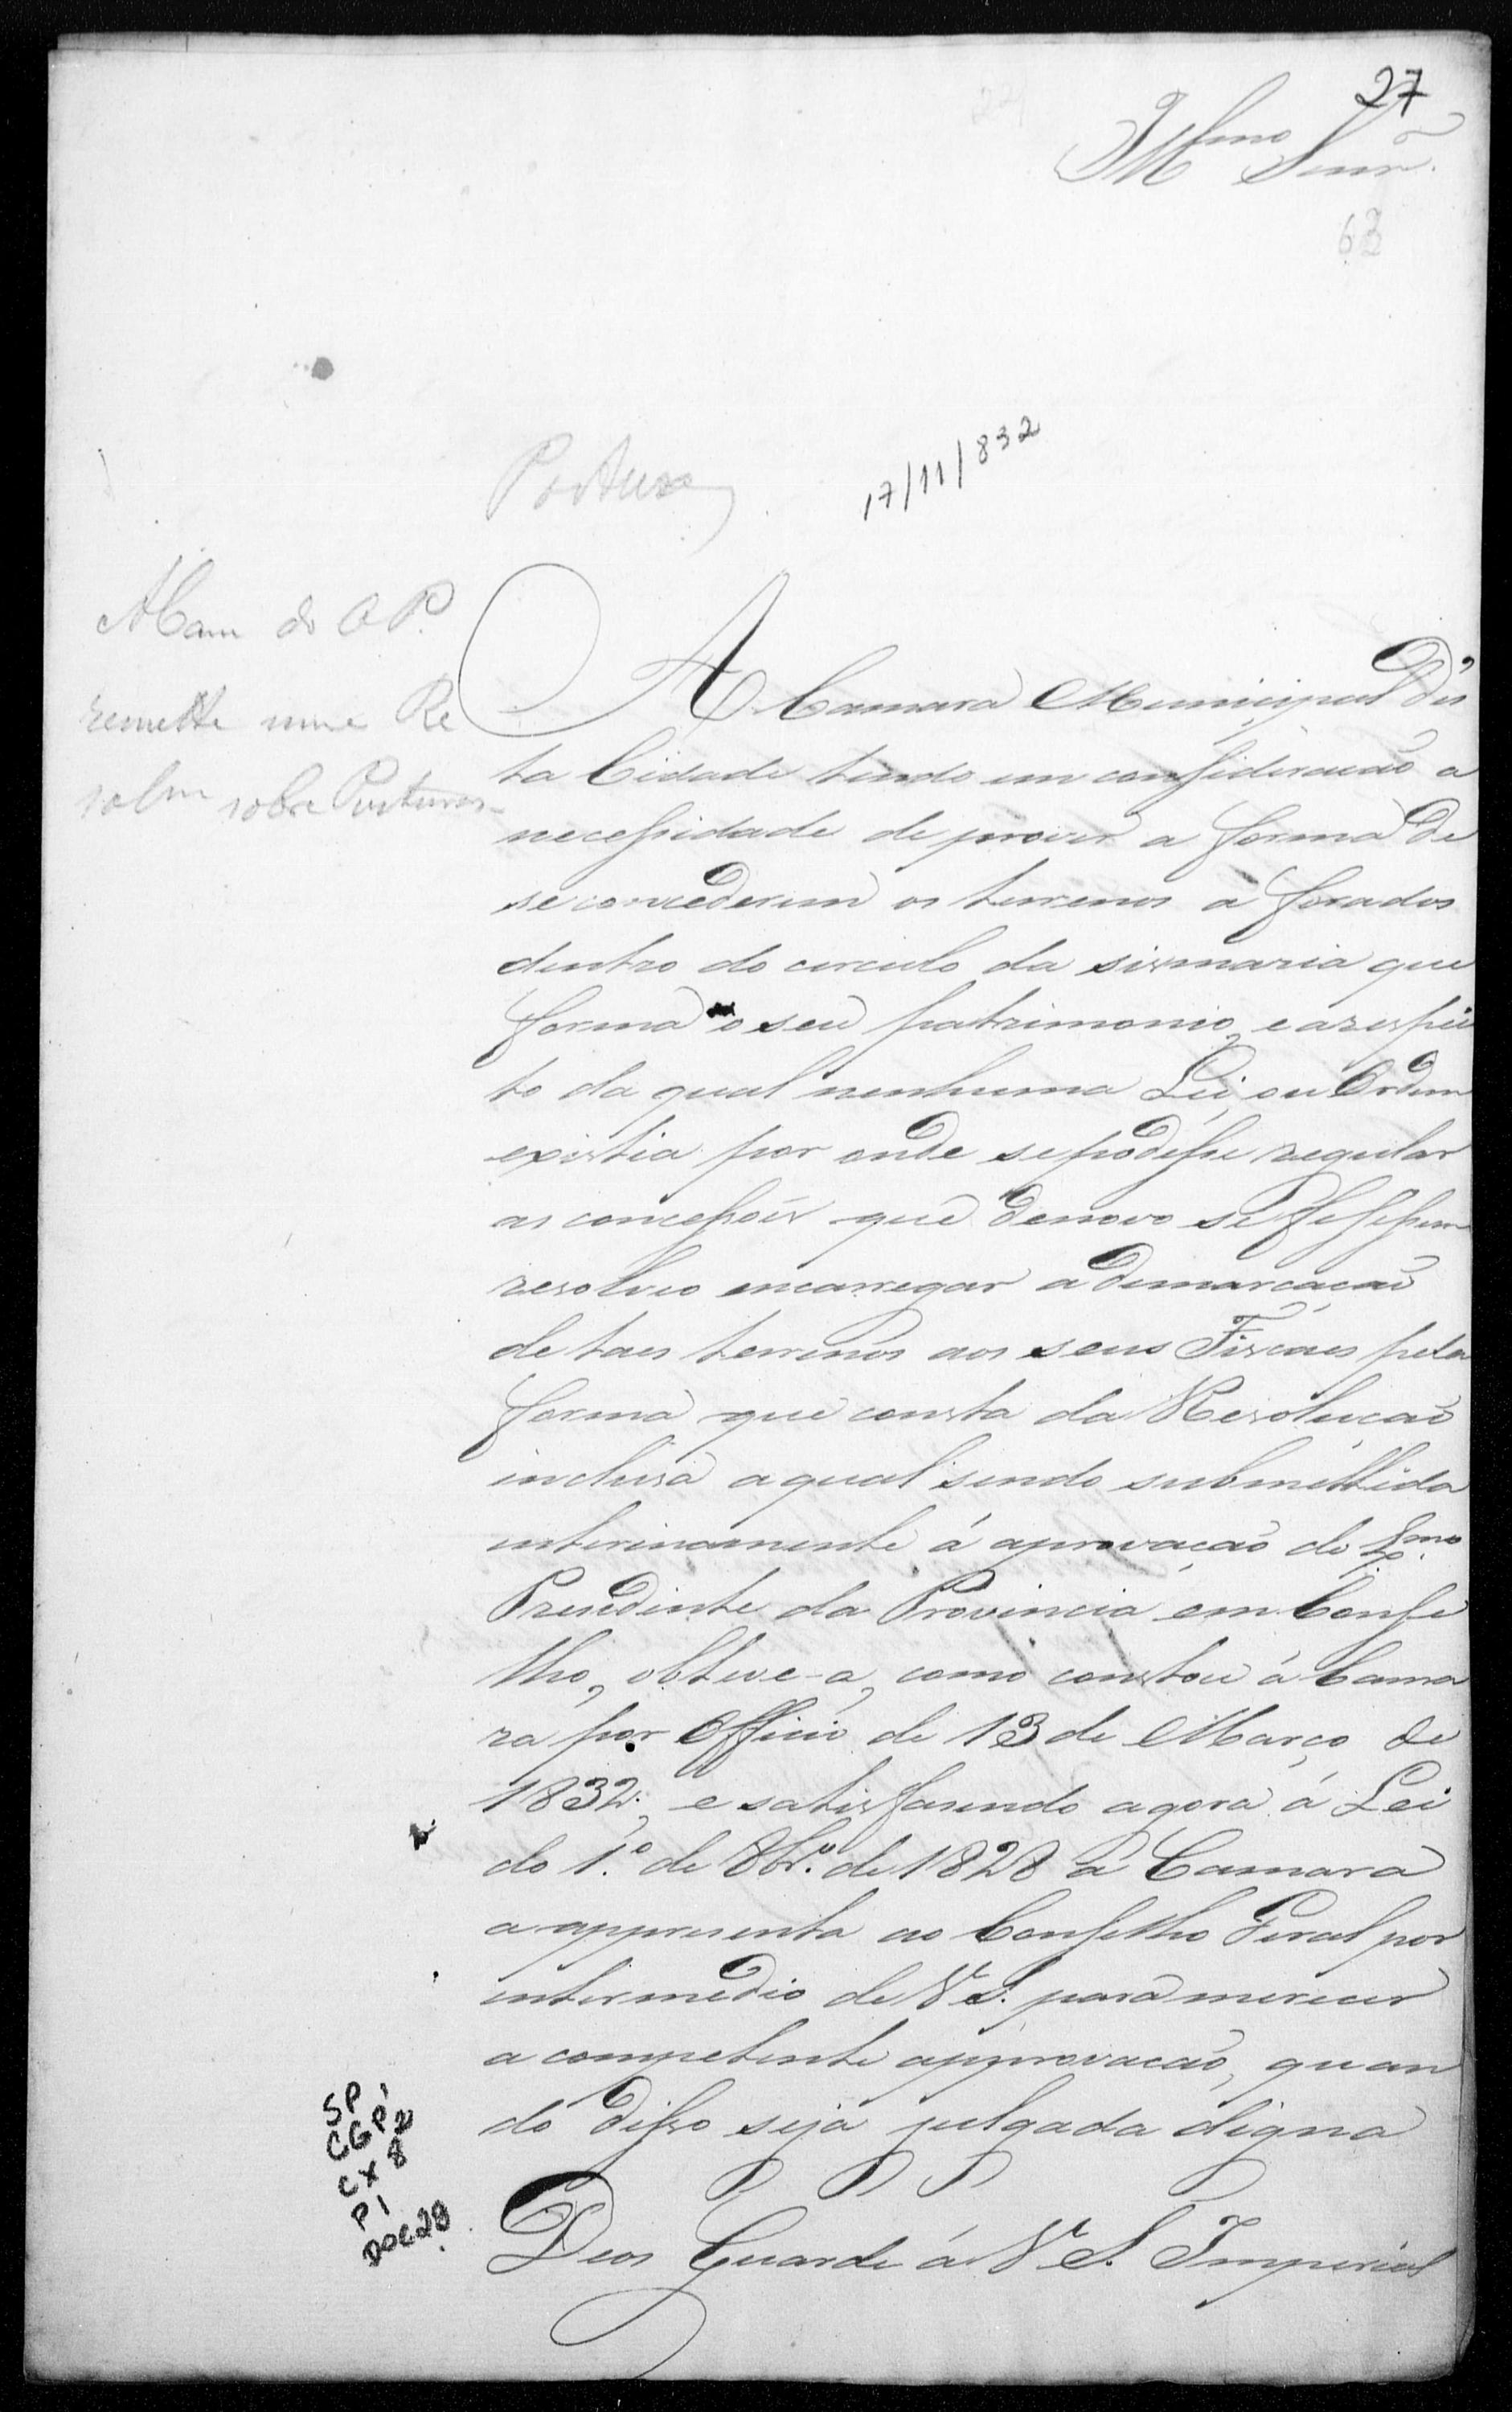 27
Illmo Senr.
63
Posturas
17/11/832
A Cam do O P.
remette uma Re
solm sobre Posturas
A Camara Municipal d'es
ta Cidade tendo em consideração a
necessidade de prover a forma de
se concederem os terrenos a forados
dentro do circulo da sismaria que
forma o seu patrimonio, e a respei
to da qual nenhuma Lei, ou Ordem
existia por onde se podesse regular
as concessões que de novo se fisessem
resolveo encarregar a demarcação
de taes terrenos aos seus Fiscaes pela
forma que consta da Resolução
inclusa a qual sendo submettida
interinamente á aprovação do Exmo
Presidente da Provincia em Conse
lho, obteve-a, como constou á Cama
ra por Officio de 13 de Março de
1832, e satisfasendo agora á Lei
do 1.º de 8br.º de 1828 a Camara
a appresenta ao Conselho Geral por
intermedio de V S. para merecer
a competente approvação, quan
do disso seja julgada digna
Deos Guarde á V S. Imperial
SP
CGP 2
CX 8
P1
DOC 28